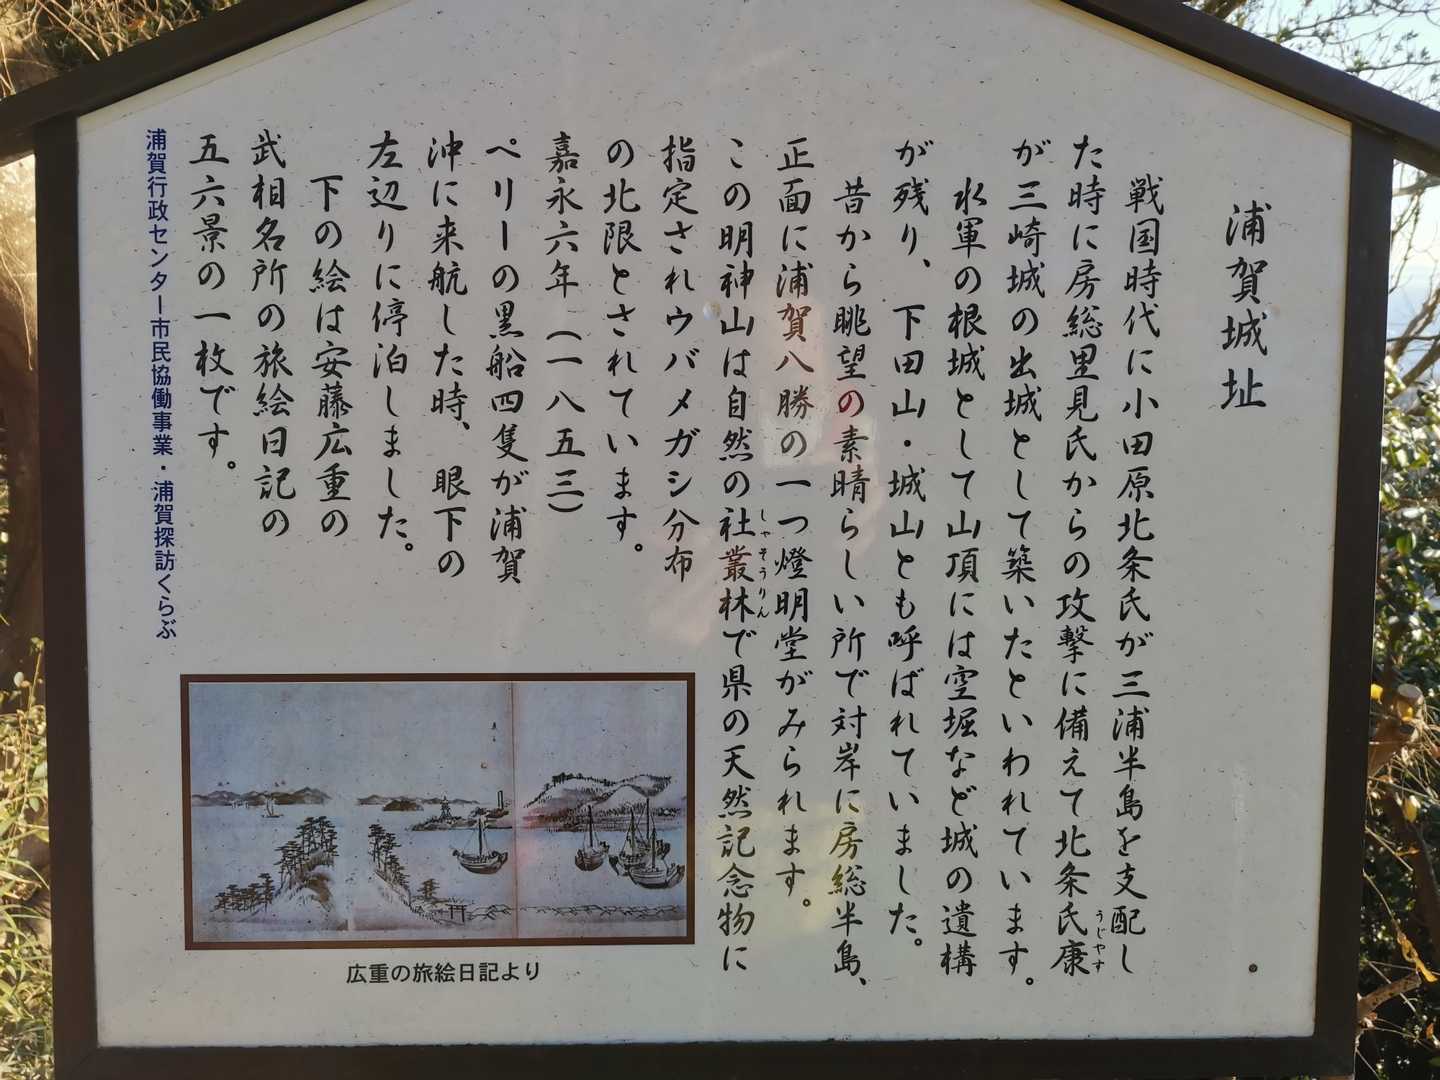 浦賀城址
戦国時代に小田原北条氏が三浦半島を支配し
た時に房総里見氏からの攻撃に備えて北条氏康
うじやす
が三崎城の出城として築いたといわれています。
水軍の根城として山頂には空堀など城の遺構
が残り、下田山・城山とも呼ばれていました。
昔から眺望の素晴らしい所で対岸に房総半島、
正面に浦賀八勝の一つ燈明堂がみられます。
この明神山は自然の社叢林で県の天然記念物に
しゃそうりん
指定されウバメガシ分布
の北限とされています。
嘉永六年(一八五三)
ペリーの黒船四隻が浦賀
沖に来航した時、眼下の
左辺りに停泊しました。
下の絵は安藤広重の
武相名所の旅絵日記の
五六景の一枚です。
浦賀行政センター市民協働事業・浦賀探訪くらぶ
広重の旅絵日記より